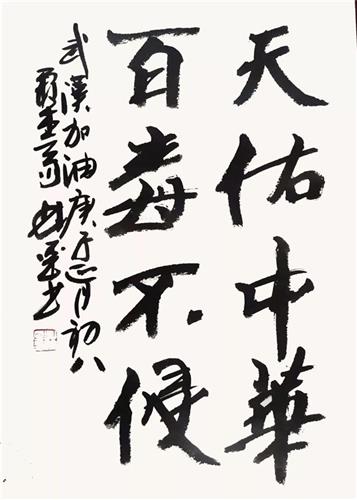 天佑中華
百毒不侵
武漢加油庚子正月初八